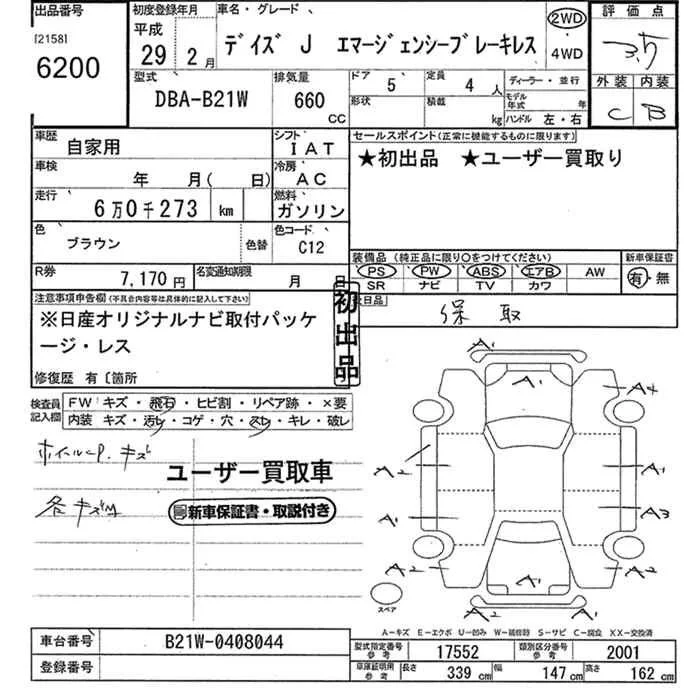 出品番号
[2158]
6200
初度登録年月
平成
29年2月
車名・グレード
デイズ J エマージェンシーブレーキレス
2WD
・
4WD
評価点
3.5
型式
DBA-B21W
排気量
660
CC
ドア
5
定員
4人
形状
積載
kg
ディーラー・並行
モデル年式
年
ハンドル 左・右
外装 内装
C B
車歴
自家用
シフト
IAT
車検
年 月( 日)
冷房
AC
走行
6万0千273 km
燃料
ガソリン
色
ブラウン
色替
色コード
C12
R券
7,170円
名変通知期限
月 日
セールスポイント(正常に機能するものに限ります)
★初出品 ★ユーザー買取り
装備品(純正品に限り○をつけてください)
PS PW ABS エアB AW
SR ナビ TV カワ
新車保証書
有・無
保 取
注意事項申告欄(不具合内容等は具体的に記入して下さい)
※日産オリジナルナビ取付パッケ
ージ・レス
修復歴 有〔箇所
初出品
検査員
記入欄
FW キズ・飛石・ヒビ割・リペア跡・×要
内装 キズ・汚レ・コゲ・穴・スレ・キレ・破レ
キズ
ユーザー買取車
各キズ
新車保証書・取説付き
A1
A4
A2
A1
A1
A1
A3
A2
A1
A2
A1
スペア
A-キズ E-エクボ U-凹み W-補修跡 S-サビ C-腐蝕 XX-交換済
車台番号
B21W-0408044
登録番号
型式指定番号
参考
17552
類別区分番号
参考
2001
車庫証明用
参考
長さ
339 cm
幅
147 cm
高さ
162 cm